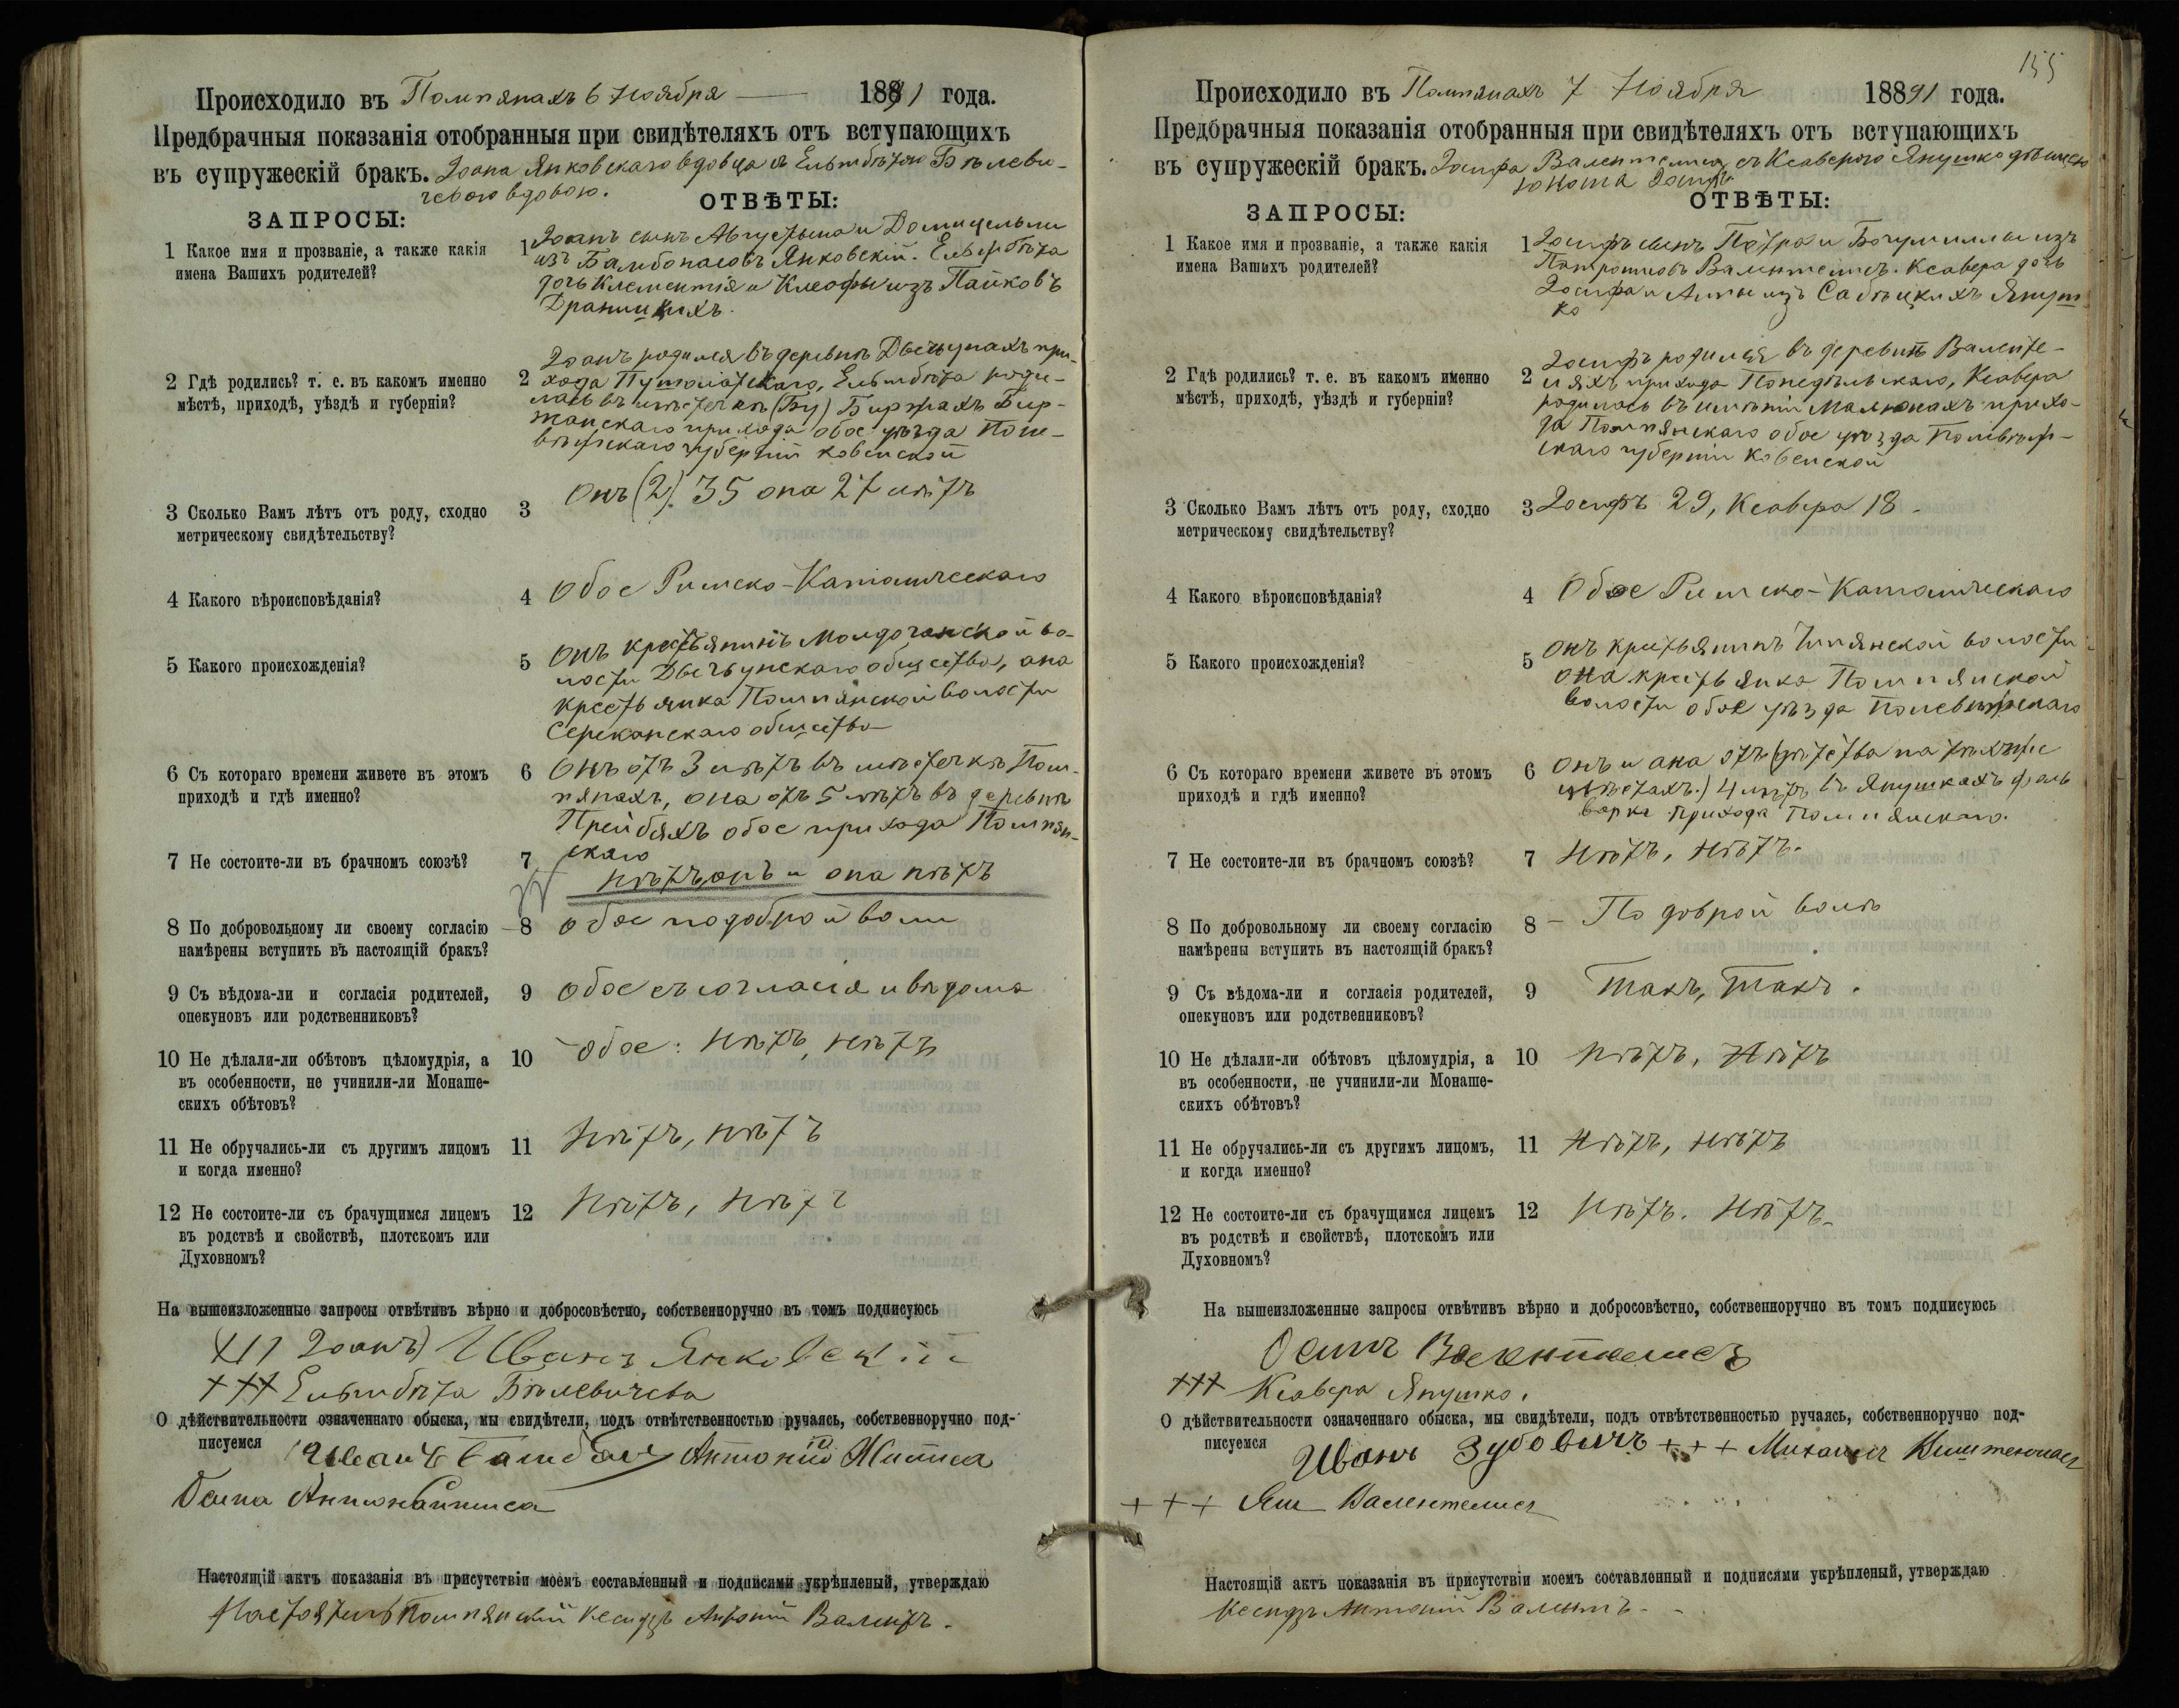 Происходило въ Помпянахъ 6 Ноября — 1891 года.
Предбрачныя показанія отобранныя при свидѣтеляхъ отъ вступающихъ
въ супружескій бракъ. Іоана Янковскаго вдовца съ Ельжбѣтою Бѣлеви-
чевою вдовою.
ЗАПРОСЫ:
ОТВѢТЫ:
1 Какое имя и прозваніе, а также какія
имена Вашихъ родителей?
1 Іоанъ сынъ Августына и Домицельли
изъ Бамбонасовъ Янковскій. Ельжбѣта
дочь Клементія и Клеофы изъ Пайковъ
2 Гдѣ родились? т. е. въ какомъ именно
мѣстѣ, приходѣ, уѣздѣ и губерніи?
2 Іоанъ родился въ деревнѣ при-
хода Ельжбѣта роди-
лась въ мѣстечкѣ (Бу) Биржахъ Бир-
жанскаго прихода обое уѣзда Поне-
вѣжскаго губерніи ковенской
3 Сколько Вамъ лѣтъ отъ роду, сходно
метрическому свидѣтельству?
3 Онъ (2). 35 она 27 лѣтъ
4 Какого вѣроисповѣданія?
4 Обое Римско-Католическаго
5 Какого происхожденія?
5 Онъ крестьянинъ во-
лости общества, она
крестьянка Помпянской волости
общества
6 Съ котораго времени живете въ этомъ
приходѣ и гдѣ именно?
6 Онъ отъ 3 лѣтъ въ мѣстечкѣ Пом-
пянахъ, она отъ 5 лѣтъ въ деревнѣ
Прейбяхъ обое прихода Помпян-
скаго
7 Не состоите-ли въ брачномъ союзѣ?
7 нѣтъ онъ и она нѣтъ
8 По добровольному ли своему согласію
намѣрены вступить въ настоящій бракъ?
8 обое по доброй воли
9 Съ вѣдома-ли и согласія родителей,
опекуновъ или родственниковъ?
9 Обое съ согласія и вѣдома
10 Не дѣлали-ли обѣтовъ цѣломудрія, а
въ особенности, не учинили-ли Монаше-
скихъ обѣтовъ?
10 обое: нѣтъ, нѣтъ
11 Не обручались-ли съ другимъ лицомъ
и когда именно?
11 Нѣтъ, нѣтъ
12 Не состоите-ли съ брачущимся лицемъ
въ родствѣ и свойствѣ, плотскомъ или
Духовномъ?
12 Нѣтъ, нѣтъ
На вышеизложенные запросы отвѣтивъ вѣрно и добросовѣстно, собственноручно въ томъ подписуюсь
Іоанъ) Иванъ Янковскій
+++ Ельжбѣта Бѣлевичева
О дѣйствительности означеннаго обыска, мы свидѣтели, подъ отвѣтственностью ручаясь, собственноручно под-
писуемся Иванъ Антоній
Настоящій актъ показанія въ присутствіи моемъ составленный и подписями укрѣпленый, утверждаю
Настоятель Помпянскій Ксендзъ Антоній
155
Происходило въ Помпянахъ 7 Ноября 1891 года.
Предбрачныя показанія отобранныя при свидѣтеляхъ отъ вступающихъ
въ супружескій бракъ. Іосифа Валентелиса съ Ксаверою Янушко дѣвицею
юноша Іосифъ
ЗАПРОСЫ:
ОТВѢТЫ:
1 Какое имя и прозваніе, а также какія
имена Вашихъ родителей?
1 Іосифъ сынъ Петра и Богумиллы изъ
Валентелисъ. Ксавера дочь
Іосифа и Анны изъ Сабѣцкихъ Януш-
ко
2 Гдѣ родились? т. е. въ какомъ именно
мѣстѣ, приходѣ, уѣздѣ и губерніи?
2 Іосифъ родился въ деревнѣ Валенте-
ляхъ прихода Понедѣльскаго, Ксавера
родилась въ имѣніи Малюнахъ прихо-
да Помпянскаго обое уѣзда Поневѣж-
скаго губерніи Ковенской
3 Сколько Вамъ лѣтъ отъ роду, сходно
метрическому свидѣтельству?
3 Іосифъ 29, Ксавера 18.
4 Какого вѣроисповѣданія?
4 Обое Римско-Католическаго
5 Какого происхожденія?
5 Онъ крестьянинъ волости
она крестьянка Помпянской
волости обое уѣзда Поневѣжскаго
6 Съ котораго времени живете въ этомъ
приходѣ и гдѣ именно?
6 Онъ и она отъ
4 лѣтъ въ Янушкахъ фоль-
варка прихода Помпянскаго.
7 Не состоите-ли въ брачномъ союзѣ?
7 Нѣтъ, нѣтъ.
8 По добровольному ли своему согласію
намѣрены вступить въ настоящій бракъ?
8 – По доброй волѣ
9 Съ вѣдома-ли и согласія родителей,
опекуновъ или родственниковъ?
9 Такъ, такъ.
10 Не дѣлали-ли обѣтовъ цѣломудрія, а
въ особенности, не учинили-ли Монаше-
скихъ обѣтовъ?
10 Нѣтъ, Нѣтъ
11 Не обручались-ли съ другимъ лицомъ,
и когда именно?
11 Нѣтъ, нѣтъ
12 Не состоите-ли съ брачущимся лицемъ
въ родствѣ и свойствѣ, плотскомъ или
Духовномъ?
12 Нѣтъ. Нѣтъ.
На вышеизложенные запросы отвѣтивъ вѣрно и добросовѣстно, собственноручно въ томъ подписуюсь
Осипъ Валентелисъ
+++ Ксавера Янушко.
О дѣйствительности означеннаго обыска, мы свидѣтели, подъ отвѣтственностью ручаясь, собственноручно под-
писуемся Иванъ Зубовичъ +++ Михаилъ
+++ Яш Валентелисъ
Настоящій актъ показанія въ присутствіи моемъ составленный и подписями укрѣпленый, утверждаю
Ксендзъ Антоній